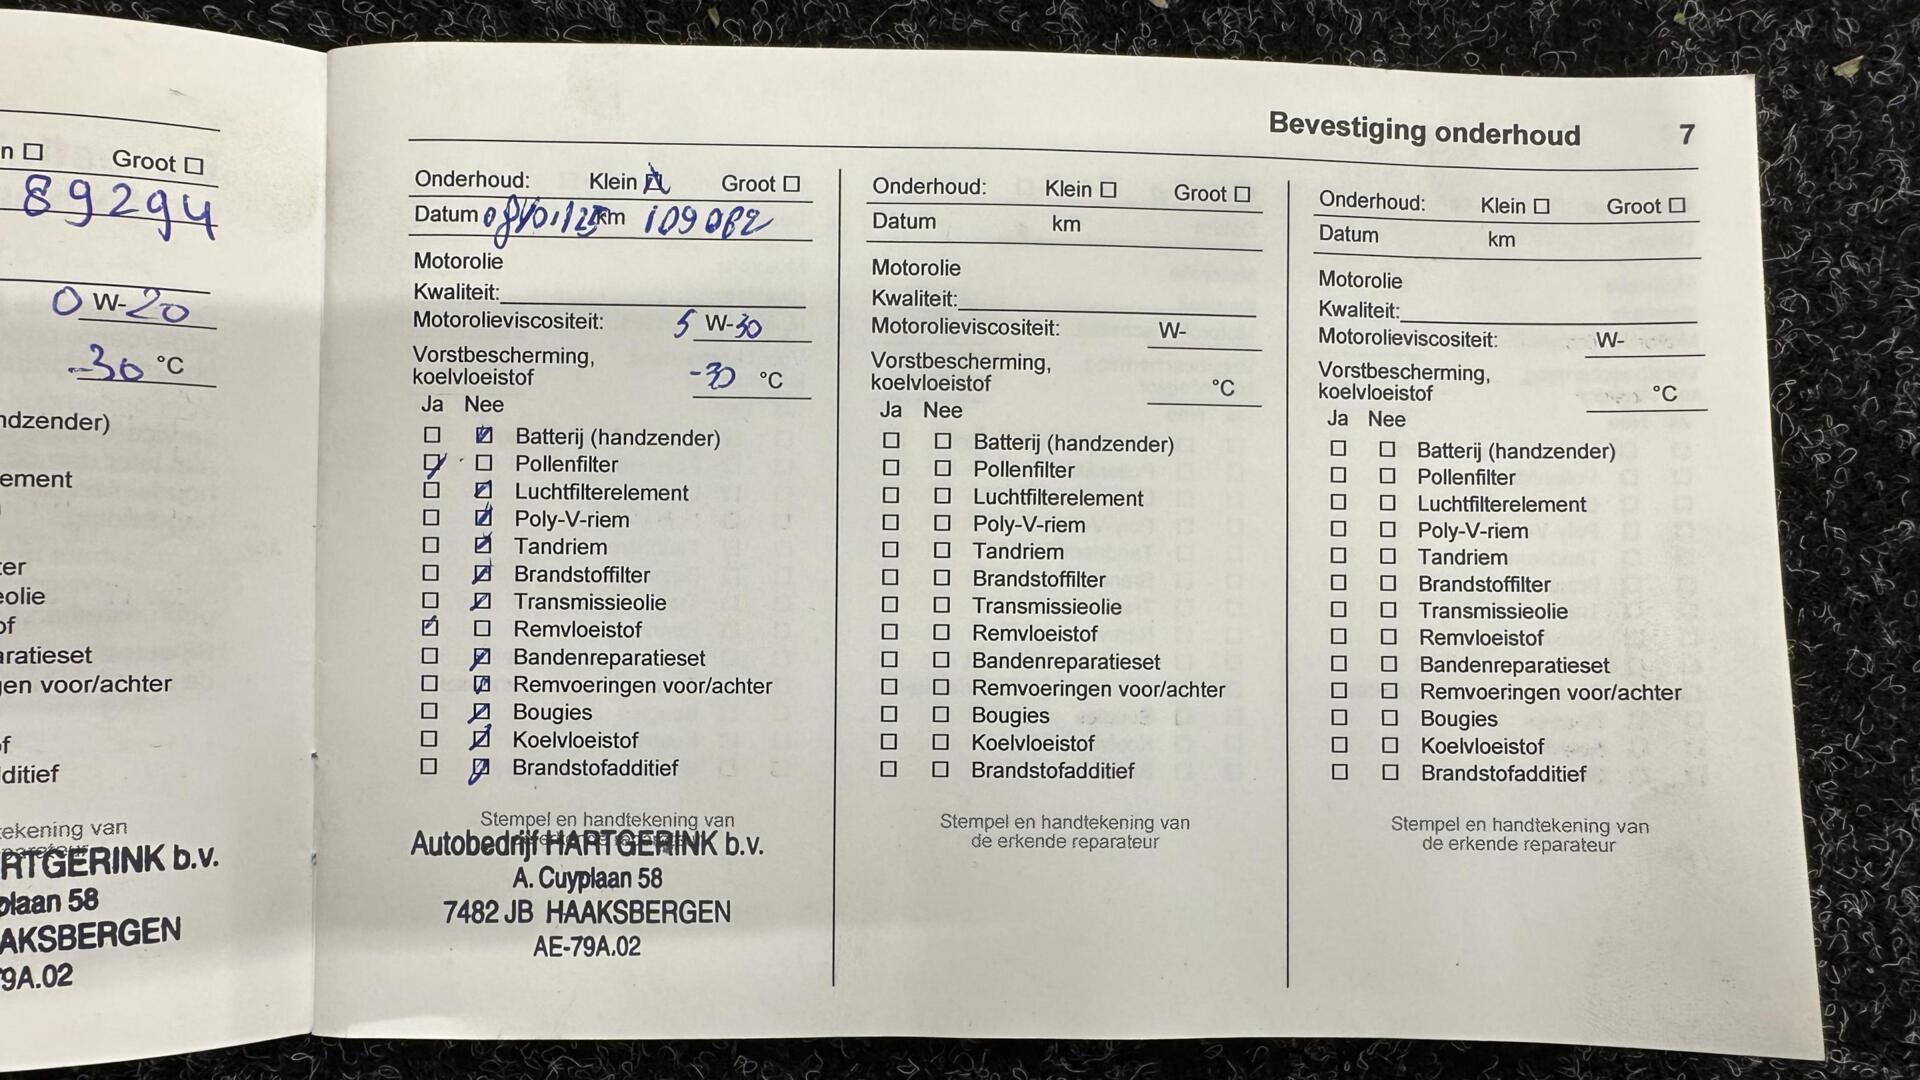 n Groot
89294
0 W-20
-30 °C
ndzender)
ement
ter
eolie
of
aratieset
gen voor/achter
of
dditief
tekening van
RTGERINK b.v.
plaan 58
AAKSBERGEN
79A.02
Bevestiging onderhoud 7
Onderhoud: Klein Groot
Datum 08/01/25 km 109082
Motorolie
Kwaliteit:
Motorolieviscositeit: 5 W-30
Vorstbescherming,
koelvloeistof -30 °C
Ja Nee
Batterij (handzender)
Pollenfilter
Luchtfilterelement
Poly-V-riem
Tandriem
Brandstoffilter
Transmissieolie
Remvloeistof
Bandenreparatieset
Remvoeringen voor/achter
Bougies
Koelvloeistof
Brandstofadditief
Stempel en handtekening van
Autobedrijf HARTGERINK b.v.
A. Cuyplaan 58
7482 JB HAAKSBERGEN
AE-79A.02
Onderhoud: Klein Groot
Datum km
Motorolie
Kwaliteit:
Motorolieviscositeit: W-
Vorstbescherming,
koelvloeistof °C
Ja Nee
Batterij (handzender)
Pollenfilter
Luchtfilterelement
Poly-V-riem
Tandriem
Brandstoffilter
Transmissieolie
Remvloeistof
Bandenreparatieset
Remvoeringen voor/achter
Bougies
Koelvloeistof
Brandstofadditief
Stempel en handtekening van
de erkende reparateur
Onderhoud: Klein Groot
Datum km
Motorolie
Kwaliteit:
Motorolieviscositeit: W-
Vorstbescherming,
koelvloeistof °C
Ja Nee
Batterij (handzender)
Pollenfilter
Luchtfilterelement
Poly-V-riem
Tandriem
Brandstoffilter
Transmissieolie
Remvloeistof
Bandenreparatieset
Remvoeringen voor/achter
Bougies
Koelvloeistof
Brandstofadditief
Stempel en handtekening van
de erkende reparateur